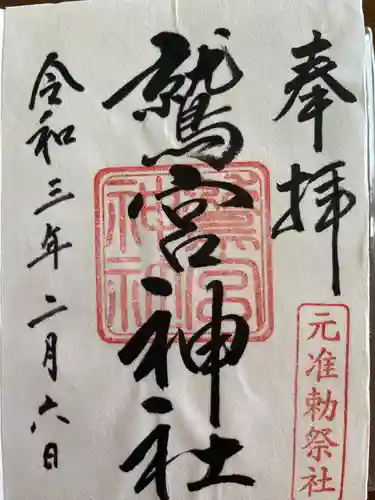 奉拝
元准勅祭社
鷲宮神社
令和三年二月六日